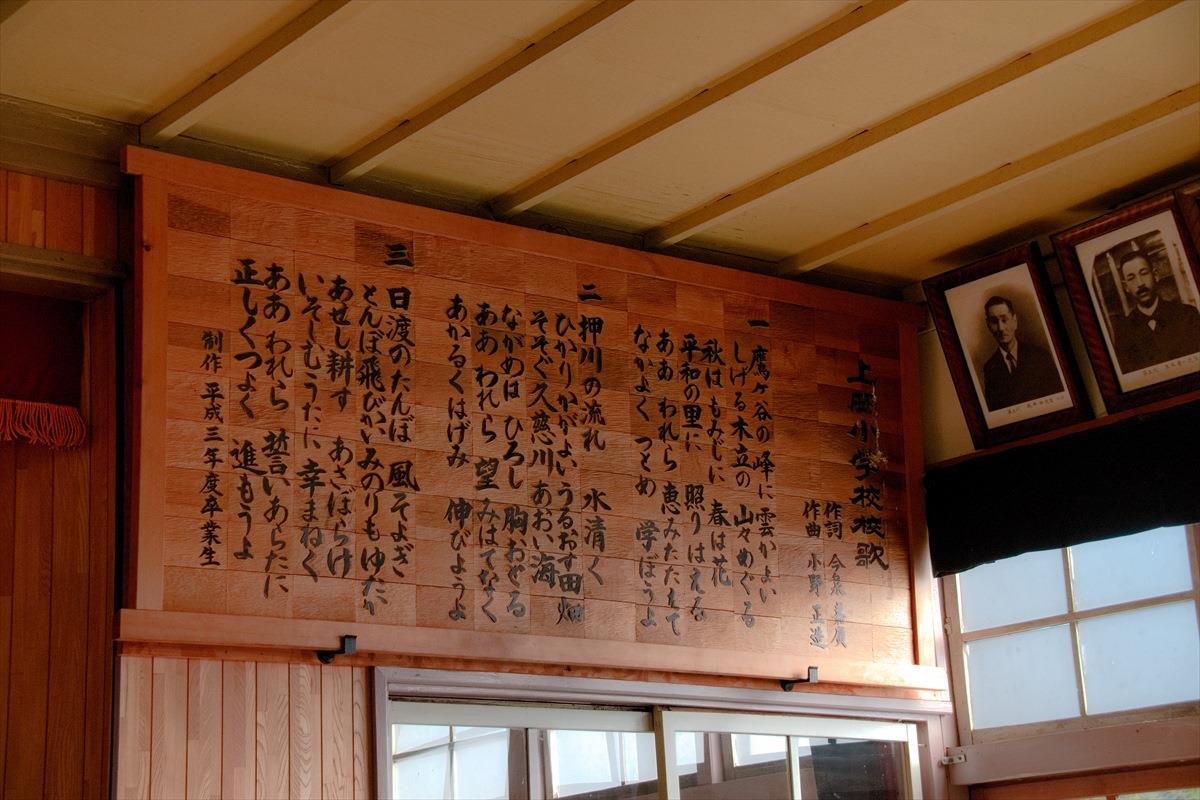 上岡小学校校歌
作詞 今泉
作曲 小野 正造
一 鷹ヶ谷の 峰に雲かよい
しげる木立の 山々めぐる
秋はもみじに 春は花
平和の里に 照りはえる
ああ われら 恵みたたえて
なかよく つとめ 学ぼうよ
二 押川の流れ 水清く
ひかりかがよい うるおす田畑
そそぐ久慈川 あおい海
ながめは ひろし 胸おどる
ああ われら 望みはてなく
あかるくはげみ 伸びようよ
三 日渡のたんぼ 風そよぎ
とんぼ飛びかい みのりもゆたか
あせし耕す あさぼらけ
いそしむうたに 幸まねく
ああ われら 誓いあらたに
正しくつよく 進もうよ
制作 平成三年度卒業生